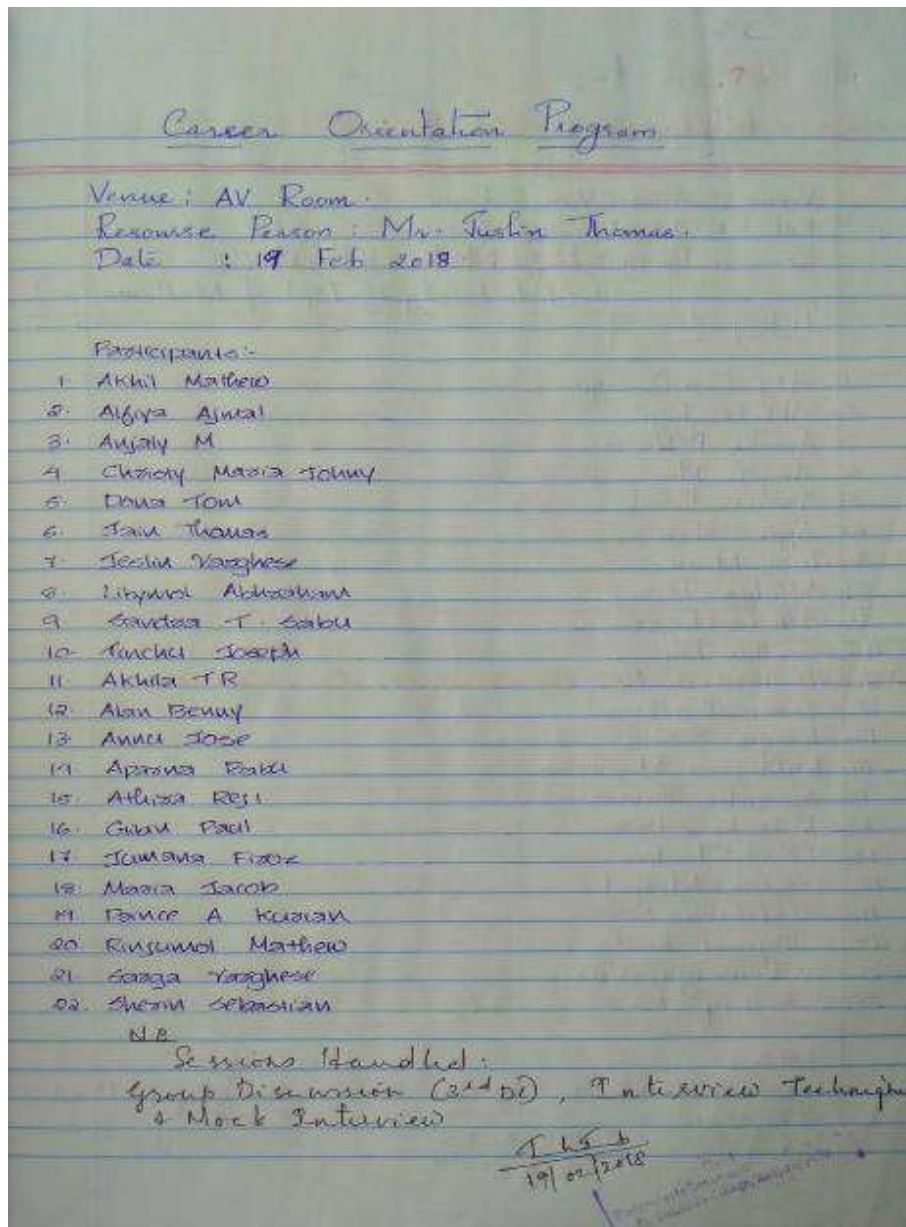 Career Orientation Program
Venue : AV Room.
Resourse Person : Mr. Justin Thomas.
Date : 19 Feb 2018
Participants:-
1. Akhil Mathew
2. Alfiya Ajmal
3. Anjaly M
4 Christy Maria Johny
5. Dona Tom
6. Jain Thomas
7. Jeslin Varghese
8. Litymol Abhraham
9 Sandra T. Sabu
10. Tinchu Joseph
11. Akhila TR
12. Alan Benny
13. Annu Jose
14. Aparna Babu
15. Athira Reji
16. Paul
17. Jumana Firoz
18. Maria Jacob
19. Prince A Kurian
20 Rinsumol Mathew
21. Saaga Varghese
22. Sherin Sebastian
NB
Sessions Handled:
Group Discussion (2nd DC), Interview Technique
& Mock Interview
19/02/2018